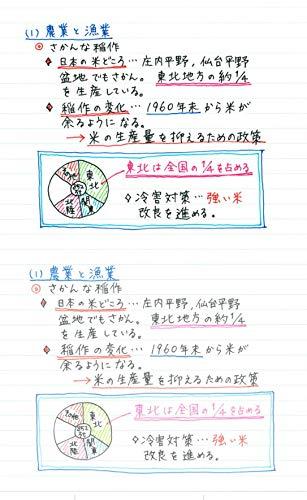 (1) 農業と漁業
◎ さかんな稲作
◆ 日本の米どころ… 庄内平野, 仙台平野
盆地でもさかん。 東北地方の約1/4
を生産している。
◆ 稲作の変化… 1960年末から米が
余るようになる。
→ 米の生産量を抑えるための政策
東北は全国の1/4を占める
その他
東北
関東
北陸
◇冷害対策…強い米
改良を進める。
(1) 農業と漁業
◎ さかんな稲作
◆ 日本の米どころ… 庄内平野, 仙台平野
盆地でもさかん。 東北地方の約1/4
を生産している。
◆ 稲作の変化… 1960年末から米が
余るようになる。
→ 米の生産量を抑えるための政策
東北は全国の1/4を占める
その他
東北
関東
北陸
◇冷害対策…強い米
改良を進める。